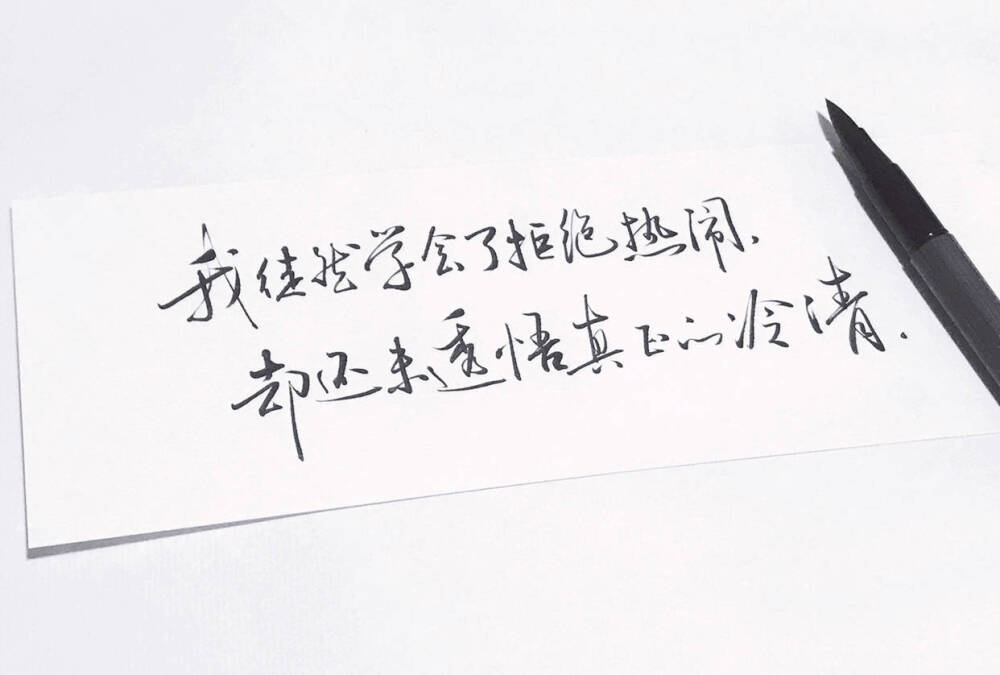 我徒然学会了拒绝热闹，
却还未透悟真正的冷清．